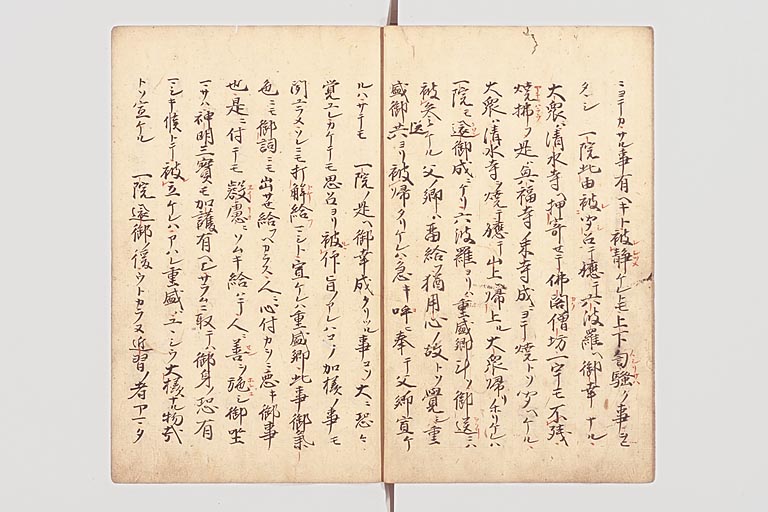 ニヨテカヽル事有ヘキト被静ケレ𪜈上下匂騒ク事ヲヒ
タヽシ 一院此由被聞召テ應テ六波羅ヘ御幸ナル
大衆ハ清水寺ヘ押寄セテ佛閣僧坊一宇モ不残
焼拂フ是ハ興福寺ノ末寺成ニヨテ焼トソ聞ヘケル
大衆ハ清水寺ヲ焼テ應テ山上ヘ帰上ル大衆帰リ
一院モ還御成ケリ六波羅ヨリハ重盛卿斗ソ御送ニハ
被参ケル父卿ハ留給フ猶用心ノ故トソ覚ヘシ重
盛御共ヨリ被帰タリケレハ急キ呼ニ奉テ父卿宣ケ
ルハサテモ 一院ノ是ヘ御幸成タリツル事コソ大ニ恐
覚ユレカケテモ思召ヨリ被仰旨アレハコソノ加様ノ事モ
聞ユラメソレニモ打解給マシト宣ケレハ重盛卿此事御氣
色ニモ御詞ニモ出サセ給フヘカラス人ニ心付カヲニ悪キ御事
也是ニ付テモ叡慮ニソムキ給ハテ人ニ善ヲ施シ御坐
サハ神明三寳モ加護有ヘシサラムニ取テハ御身ノ恐有
マシキ候トテ被立ケレハアハレ重盛ハユヽシウ大様ナル物哉
トソ宣ケル 一院還御ノ後ウトカラヌ近習ノ者アマタ